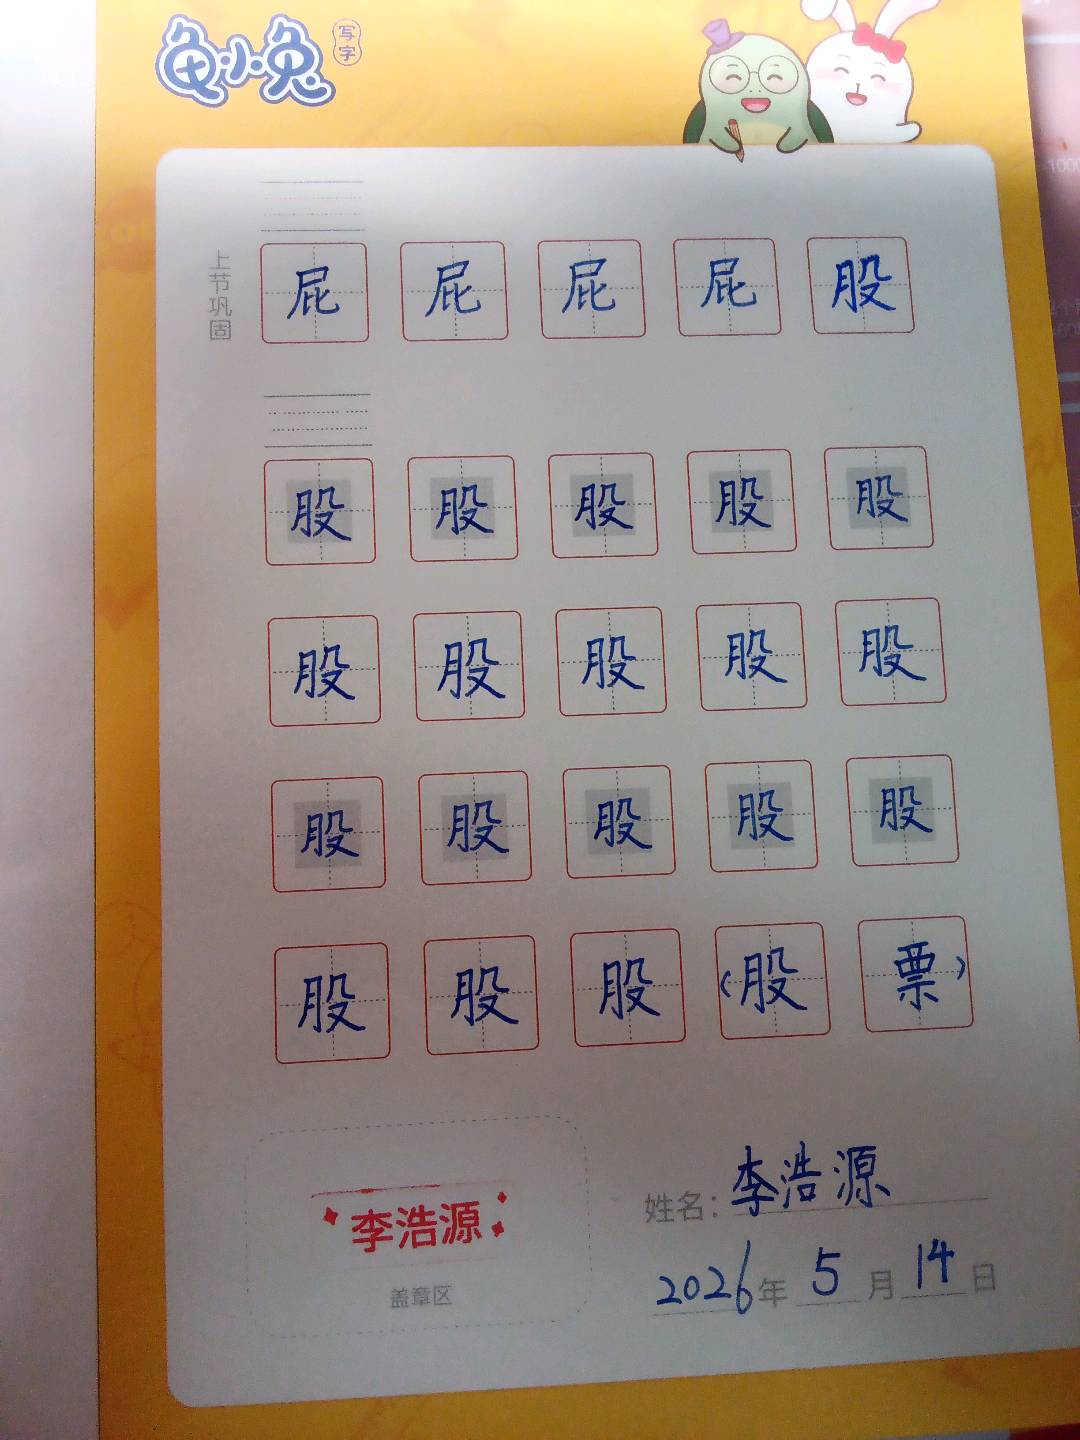 龟小兔
写字
上节巩固
屁 屁 屁 屁 股
股 股 股 股 股
股 股 股 股 股
股 股 股 股 股
股 股 股 (股 票)
李浩源
盖章区
姓名：李浩源
2026年 5 月 14 日